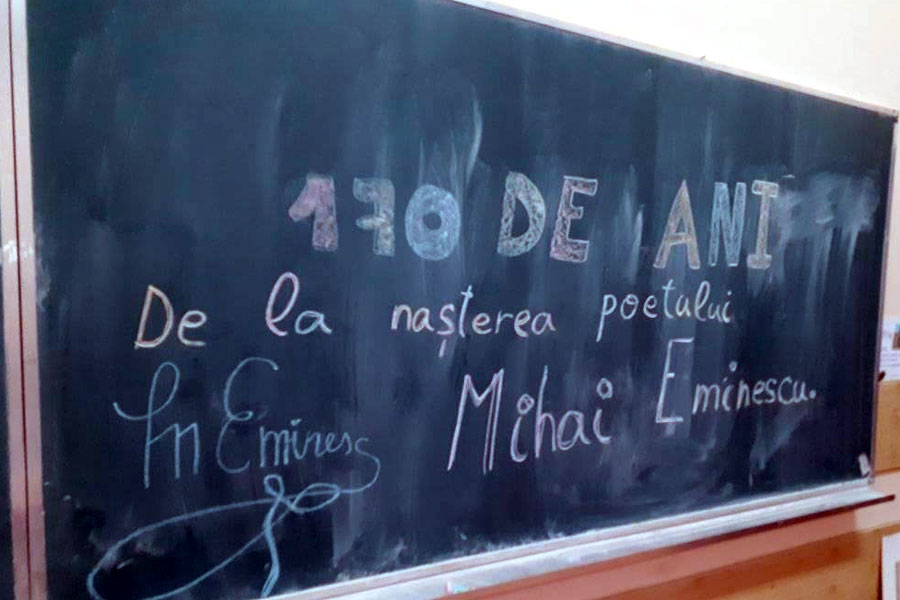 170 DE ANI
De la nașterea poetului
Mihai Eminescu.
M Eminesc